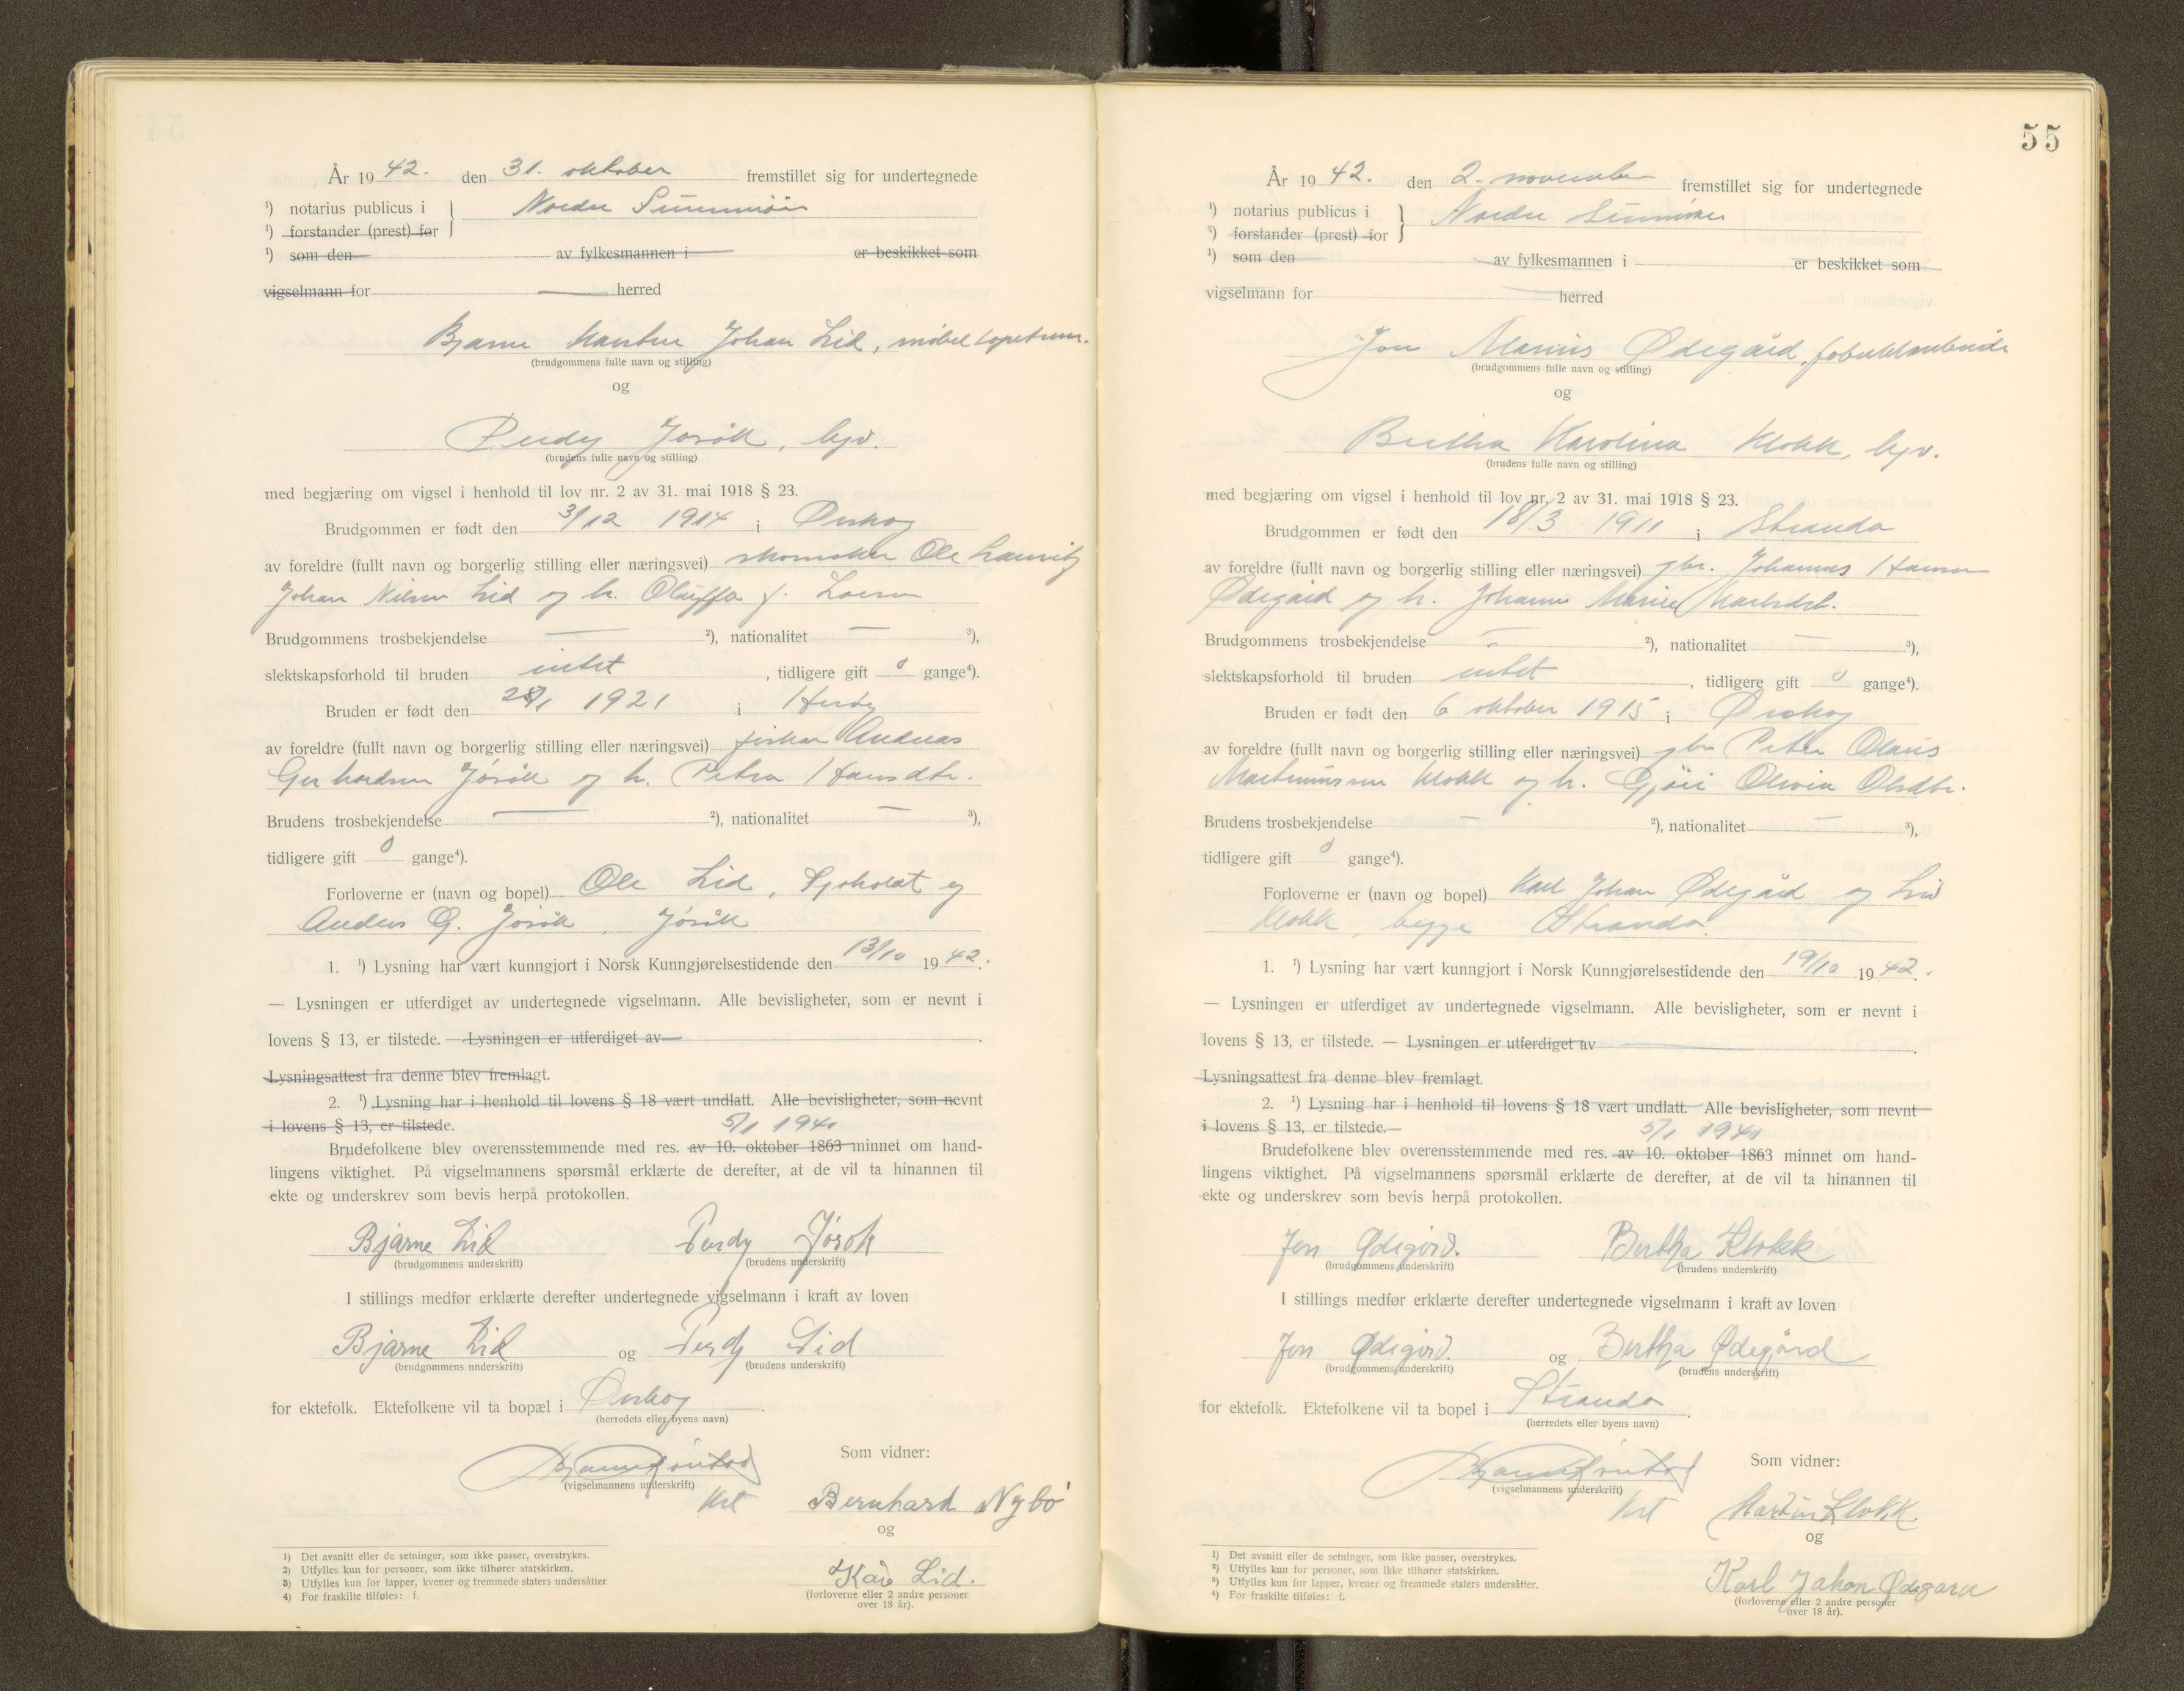 År 19 42. den 31. oktober fremstillet sig for undertegnede
¹) notarius publicus i Nordre Sunnmør
¹) forstander (prest) for
¹) som den av fylkesmannen i er beskikket som
vigselmann for herred
Bjarne Karsten Johan Lid, møbeltapetserer.
(brudgommens fulle navn og stilling)
og
Perdy Jøsok, hjv.
(brudens fulle navn og stilling)
med begjæring om vigsel i henhold til lov nr. 2 av 31. mai 1918 § 23.
Brudgommen er født den 3/12 1914 i Ørskog
av foreldre (fullt navn og borgerlig stilling eller næringsvei) skomaker Ole Lauritz
Johan Nilsen Lid og h. Oluffa f. Larsen
Brudgommens trosbekjendelse — ²), nationalitet — ³),
slektskapsforhold til bruden intet, tidligere gift 0 gange⁴).
Bruden er født den 28/1 1921 i Herøy
av foreldre (fullt navn og borgerlig stilling eller næringsvei) fisker Andreas
Gerhardsen Jøsok og h. Petra Hansdtr.
Brudens trosbekjendelse — ²), nationalitet — ³),
tidligere gift 0 gange⁴).
Forloverne er (navn og bopel) Ole Lid, Sjøholt og
Anders G. Jøsok, Jøsok
1. ¹) Lysning har vært kunngjort i Norsk Kunngjørelsestidende den 13/10 19 42.
— Lysningen er utferdiget av undertegnede vigselmann. Alle bevisligheter, som er nevnt i
lovens § 13, er tilstede. — Lysningen er utferdiget av .
Lysningsattest fra denne blev fremlagt.
2. ¹) Lysning har i henhold til lovens § 18 vært undlatt. Alle bevisligheter, som nevnt
i lovens § 13, er tilstede. 5/1 1940
Brudefolkene blev overensstemmende med res. av 10. oktober 1863 minnet om hand-
lingens viktighet. På vigselmannens spørsmål erklærte de derefter, at de vil ta hinannen til
ekte og underskrev som bevis herpå protokollen.
Bjarne Lid Perdy Jøsok
(brudgommens underskrift) (brudens underskrift)
I stillings medfør erklærte derefter undertegnede vigselmann i kraft av loven
Bjarne Lid og Perdy Lid
(brudgommens underskrift) (brudens underskrift)
for ektefolk. Ektefolkene vil ta bopæl i Ørskog.
(herredets eller byens navn)
Som vidner:
(vigselmannens underskrift)
Kst Bernhard Nybø
og
Kåre Lid.
(forloverne eller 2 andre personer
over 18 år).
1) Det avsnitt eller de setninger, som ikke passer, overstrykes.
2) Utfylles kun for personer, som ikke tilhører statskirken.
3) Utfylles kun for lapper, kvener og fremmede staters undersåtter
4) For fraskilte tilføies: f.
55
År 19 42. den 2. november fremstillet sig for undertegnede
¹) notarius publicus i Nordre Sunnmør
¹) forstander (prest) for
¹) som den av fylkesmannen i er beskikket som
vigselmann for herred
Jon Marius Ødegård, fabrikkarbeider
(brudgommens fulle navn og stilling)
og
Bertha Karolina Klokk, hjv.
(brudens fulle navn og stilling)
med begjæring om vigsel i henhold til lov nr. 2 av 31. mai 1918 § 23.
Brudgommen er født den 18/3 1911 i Stranda
av foreldre (fullt navn og borgerlig stilling eller næringsvei) gbr. Johannes Hansen
Ødegård og h. Johanne Marie
Brudgommens trosbekjendelse — ²), nationalitet — ³),
slektskapsforhold til bruden intet, tidligere gift 0 gange⁴).
Bruden er født den 6 oktober 1915 i Ørskog
av foreldre (fullt navn og borgerlig stilling eller næringsvei) gbr Peter Olaus
Martinussen Klokk og h. Gjøri Olivia Olsdtr.
Brudens trosbekjendelse — ²), nationalitet — ³),
tidligere gift 0 gange⁴).
Forloverne er (navn og bopel) Karl Johan Ødegård og
Klokk, begge Stranda.
1. ¹) Lysning har vært kunngjort i Norsk Kunngjørelsestidende den 19/10 19 42.
— Lysningen er utferdiget av undertegnede vigselmann. Alle bevisligheter, som er nevnt i
lovens § 13, er tilstede. — Lysningen er utferdiget av .
Lysningsattest fra denne blev fremlagt.
2. ¹) Lysning har i henhold til lovens § 18 vært undlatt. Alle bevisligheter, som nevnt
i lovens § 13, er tilstede. 5/1 1940
Brudefolkene blev overensstemmende med res. av 10. oktober 1863 minnet om hand-
lingens viktighet. På vigselmannens spørsmål erklærte de derefter, at de vil ta hinannen til
ekte og underskrev som bevis herpå protokollen.
Jon Ødegård. Bertha Klokk
(brudgommens underskrift) (brudens underskrift)
I stillings medfør erklærte derefter undertegnede vigselmann i kraft av loven
Jon Ødegård. og Bertha Ødegård
(brudgommens underskrift) (brudens underskrift)
for ektefolk. Ektefolkene vil ta bopel i Stranda.
(herredets eller byens navn)
Som vidner:
(vigselmannens underskrift)
Kst Martin Klokk.
og
Karl Johan Ødegård
(forloverne eller 2 andre personer
over 18 år).
1) Det avsnitt eller de setninger, som ikke passer, overstrykes.
2) Utfylles kun for personer, som ikke tilhører statskirken.
3) Utfylles kun for lapper, kvener og fremmede staters undersåtter.
4) For fraskilte tilføies: f.